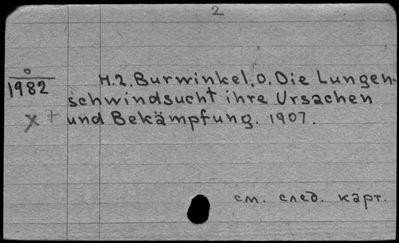 2
o
1982
H.2. Burwinkel, O. Die Lungen-
schwindsucht ihre Ursachen
x + und Bekämpfung. 1907.
см. след. карт.